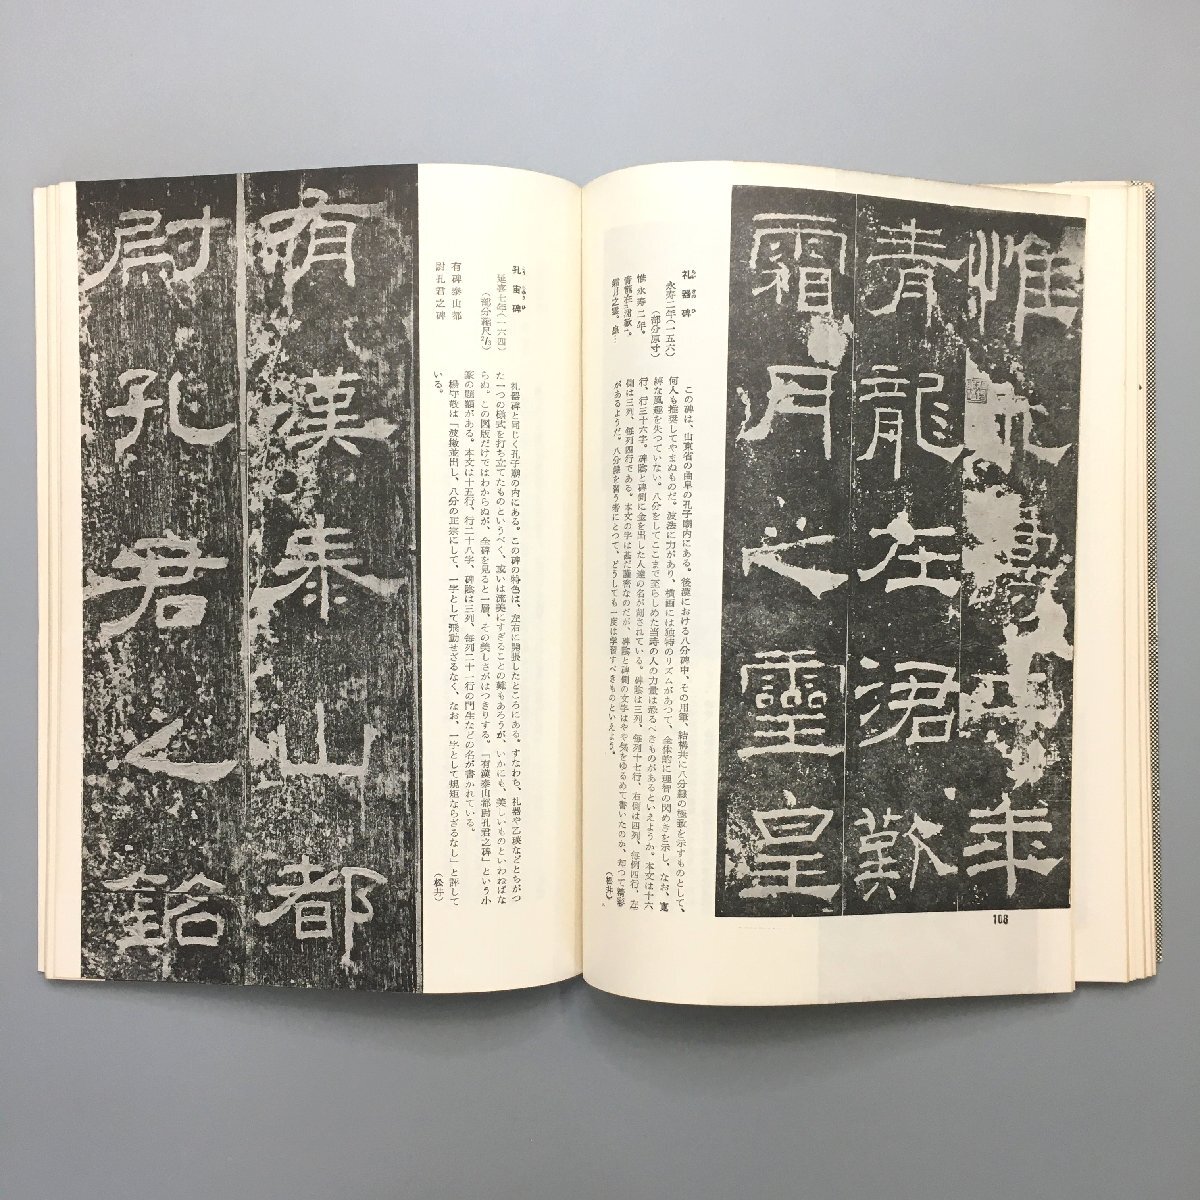 惟永壽二年
青龍在涒歎
霜月之靈皇
108
礼器碑
永寿二年(一五六)
(部分原寸)
惟永寿二年。
青龍在涒歎。
霜月之霊。皇
この碑は、山東省の曲阜の孔子廟内にある。後漢における八分碑中、その用筆、結構共に八分隷の極致を示すものとして、
何人も推奨してやまぬものだ。波法に力があり、横画には独特のリズムがあつて、全体的に理智の閃めきを示し、なお、寛
綽な風趣を失つていない。八分をしてここまで至らしめた当時の人の力量は恐るべきものがあるといえようか。本文は十六
行、行三十六字。碑陰と碑側に金を出した人達の名が刻されている。碑陰は三列、毎列十七行、右側は四列、毎側四行、左
側は三列、毎列四行である。本文の字は甚だ謹密なのだが、碑陰と碑側の文字はやや気をゆるめて書いたのか、却つて精彩
があるようだ。八分隷を習う者にとつて、どうしても一度は学習すべきものといえよう。
(松井)
孔宙碑
延熹七年(一六四)
(部分縮尺
有碑泰山都
尉孔君之碑
礼器碑と同じく孔子廟の内にある。この碑の特色は、左右に開張したところにある。すなわち、礼器や乙瑛などとちがつ
た一つの様式を打ち立てたものというべく、或いは流美にすぎることの難もあろうが、いかにも、美しいものといわねばな
らぬ。この図版だけではわからぬが、全碑を見ると一層、その美しさがはつきりする。「有漢泰山都尉孔君之碑」という小
篆の題額がある。本文は十五行、行二十八字、碑陰は三列、毎列二十一行の門生などの名が書かれている。
楊守敬は「波撇並出し、八分の正宗にして、一字として飛動せざるなく、なお、一字として規矩ならざるなし」と評して
いる。
(松井)
有漢泰山都
尉孔君之銘